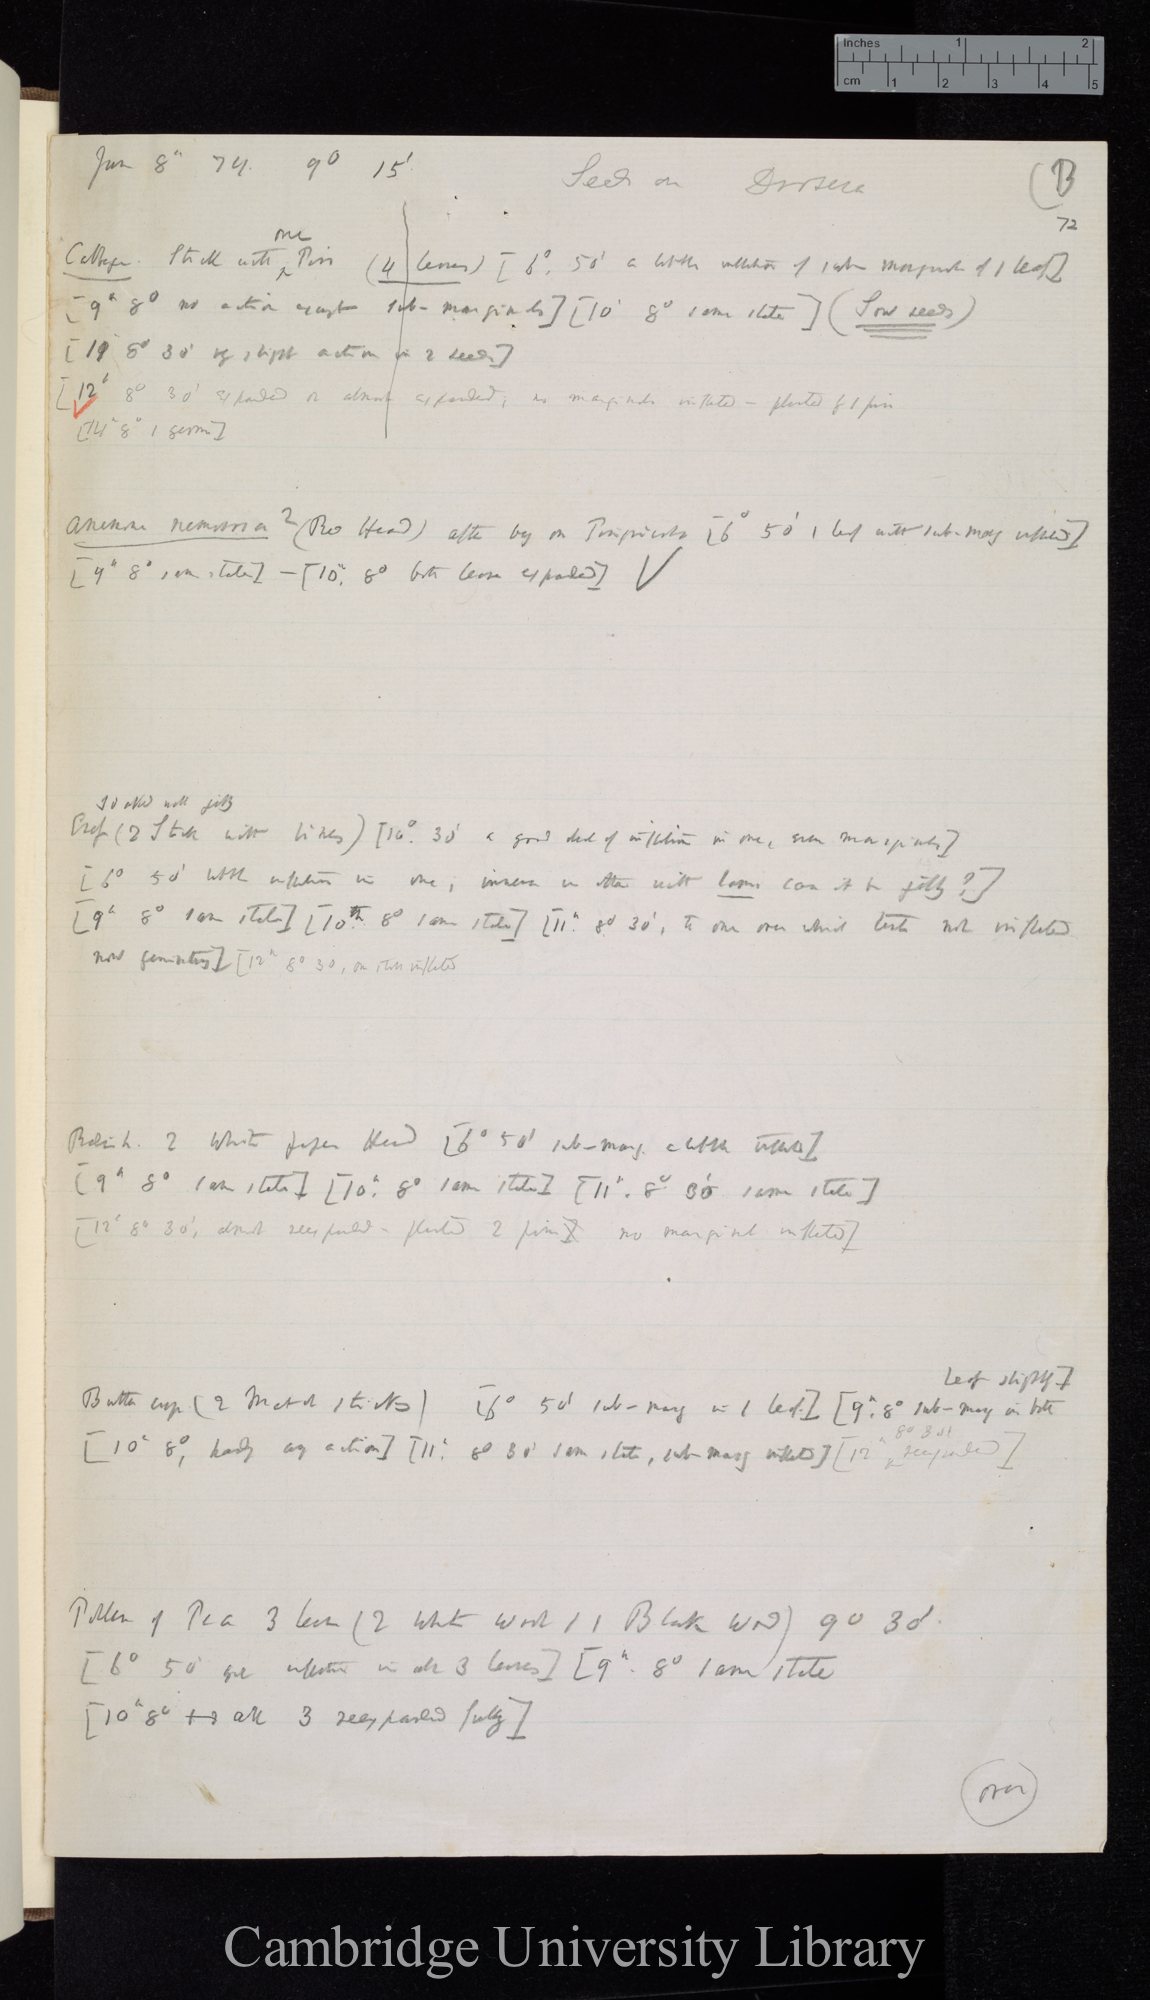 Inches 1 2
cm 1 2 3 4 5
June 8th 74. 9° 15'
Seeds on Drosera
(B
72
one
Cabbage. Stick with ^ Pin (4 leaves) [6°. 50' a little inflection of sub-marginals of 1 leaf]
[9th 8° no action except sub-marginals] [10th 8° same state] (Sow seeds)
[11 8° 30' slight action in 2 seeds]
[12th 8° 30' expanded or almost expanded; no marginals inflected – planted of 1 pin
[14th 8° 1 germ]
Anemone nemorosa 2 (Red Head) after on Pinguicula [6° 50' 1 leaf with sub-marg inflected]
[9th 8° same state] – [10th. 8° both leaves expanded]
soaked with jelly
Cress (2 Stick with lines) [10°. 30' a good deal of inflection in one, even marginals]
[6° 50' little inflection in one; immense in other with lower can it be jelly?]
[9th 8° same state] [10th 8° same state] [11th. 8° 30', the one over which tents not inflected
now germinating] [12th 8° 30, one still inflected
Radish. 2 White paper Head [6° 50' sub-marg. a little inflected]
[9th 8° same state] [10th. 8° same state] [11th. 8° 30' same state]
[12th 8° 30', almost reexpanded – planted 2 pins no marginal inflected]
leaf slightly]
Butter cup (2 Match sticks) [6° 50' sub-marg in 1 leaf.] [9th. 8° sub-marg in both
8° 30'
[10th 8°, hardly any action] [11th. 8° 30' same state, sub-marg inflected] [12th ^ reexpanded]
Pollen of Pea 3 leaves (2 White wool / 1 Black wool) 9° 30'.
[6° 50' great inflection in all 3 leaves] [9th. 8° same state
[10th 8° all 3 reexpanded fully]
over
Cambridge University Library